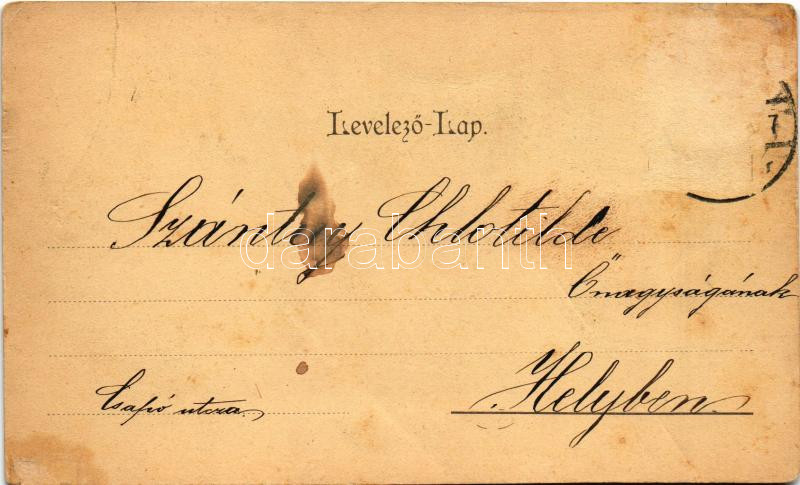 Levelező-Lap.
Szántay Chlotilde
Őnagyságának
Helyben
Csapó utcza
darabanth
7